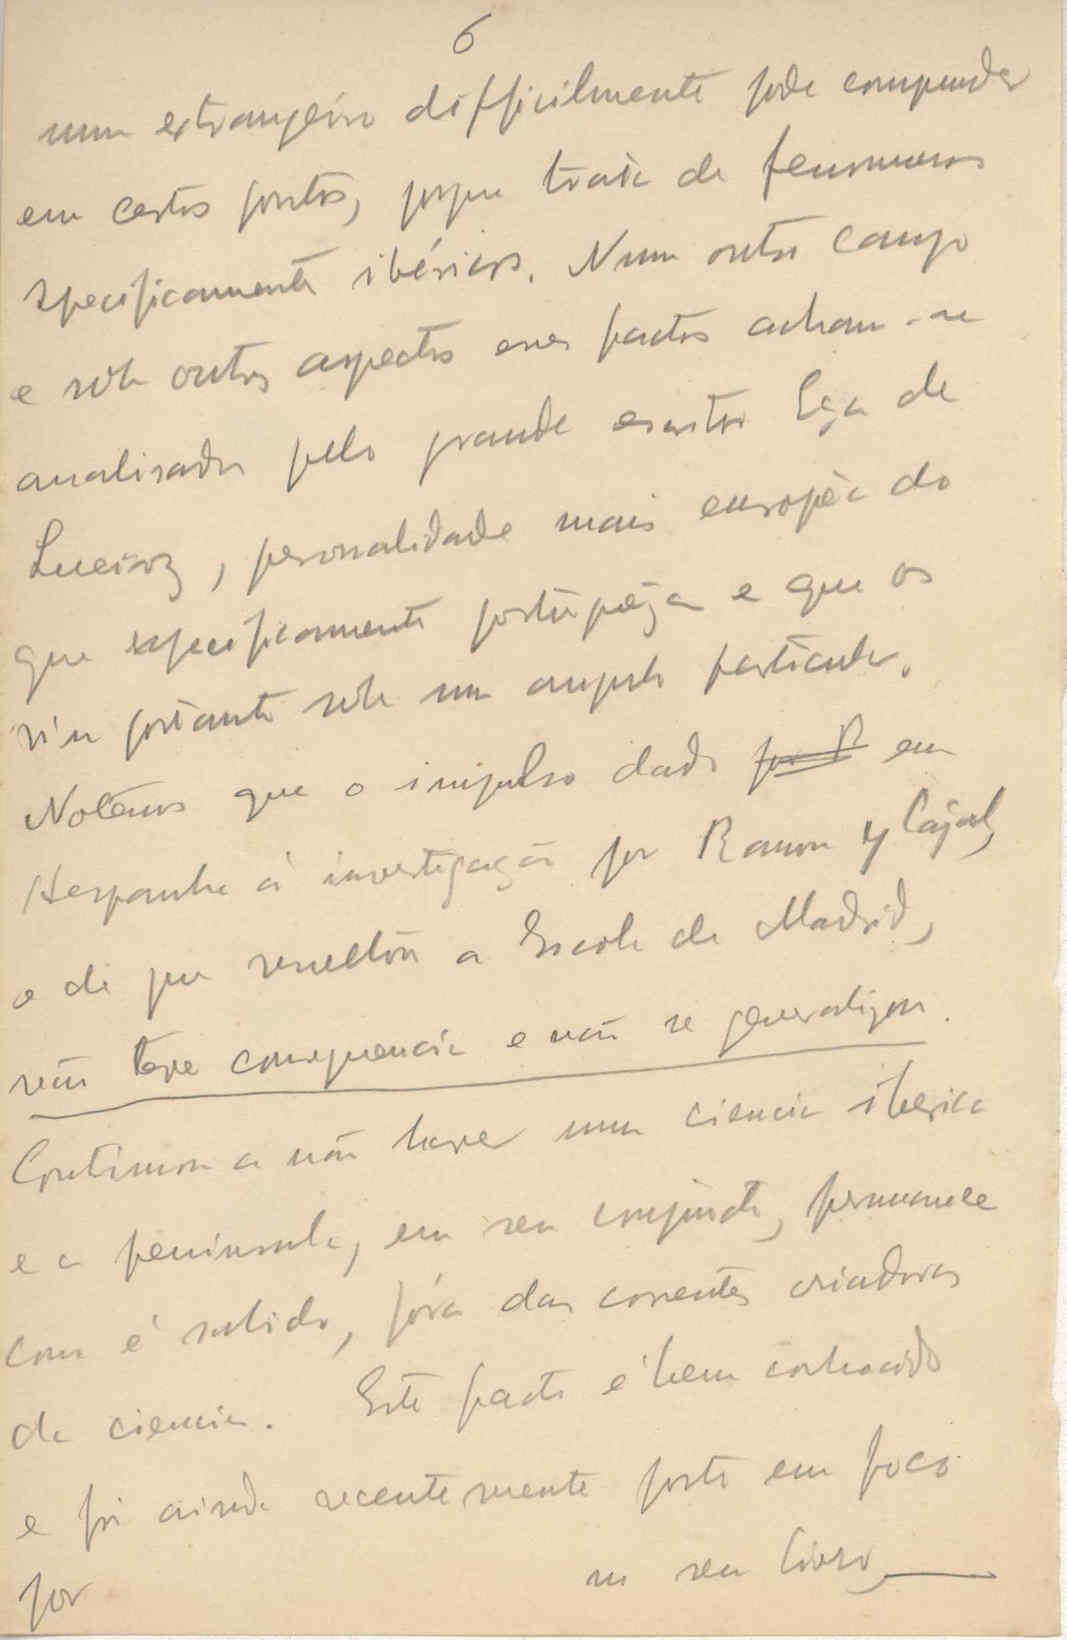 6
um estrangeiro difficilmente pode comprender
em certos pontos, porque trata de fenomenos
especificamente ibéricos. Num outro campo
e sob outros aspectos esses factos acham-se
analisados pelo grande escritor Eça de
Queiroz, personalidade mais europêa do
que especificamente portugêza e que os
viu portanto sob um angulo particular.
Notemos que o impulso dado por R em
Hespanha á investigação por Ramon y Cajal,
e de que resultou a Escola de Madrid,
não teve consequencia e não se generalizou.
Continuou a não haver uma ciencia iberica
e a peninsula, em seu conjuncto, permanece
como é sabido, fóra das correntes criadoras
da ciencia. Este facto é bem conhecido
e foi ainda recentemente posto em foco
por no seu livro